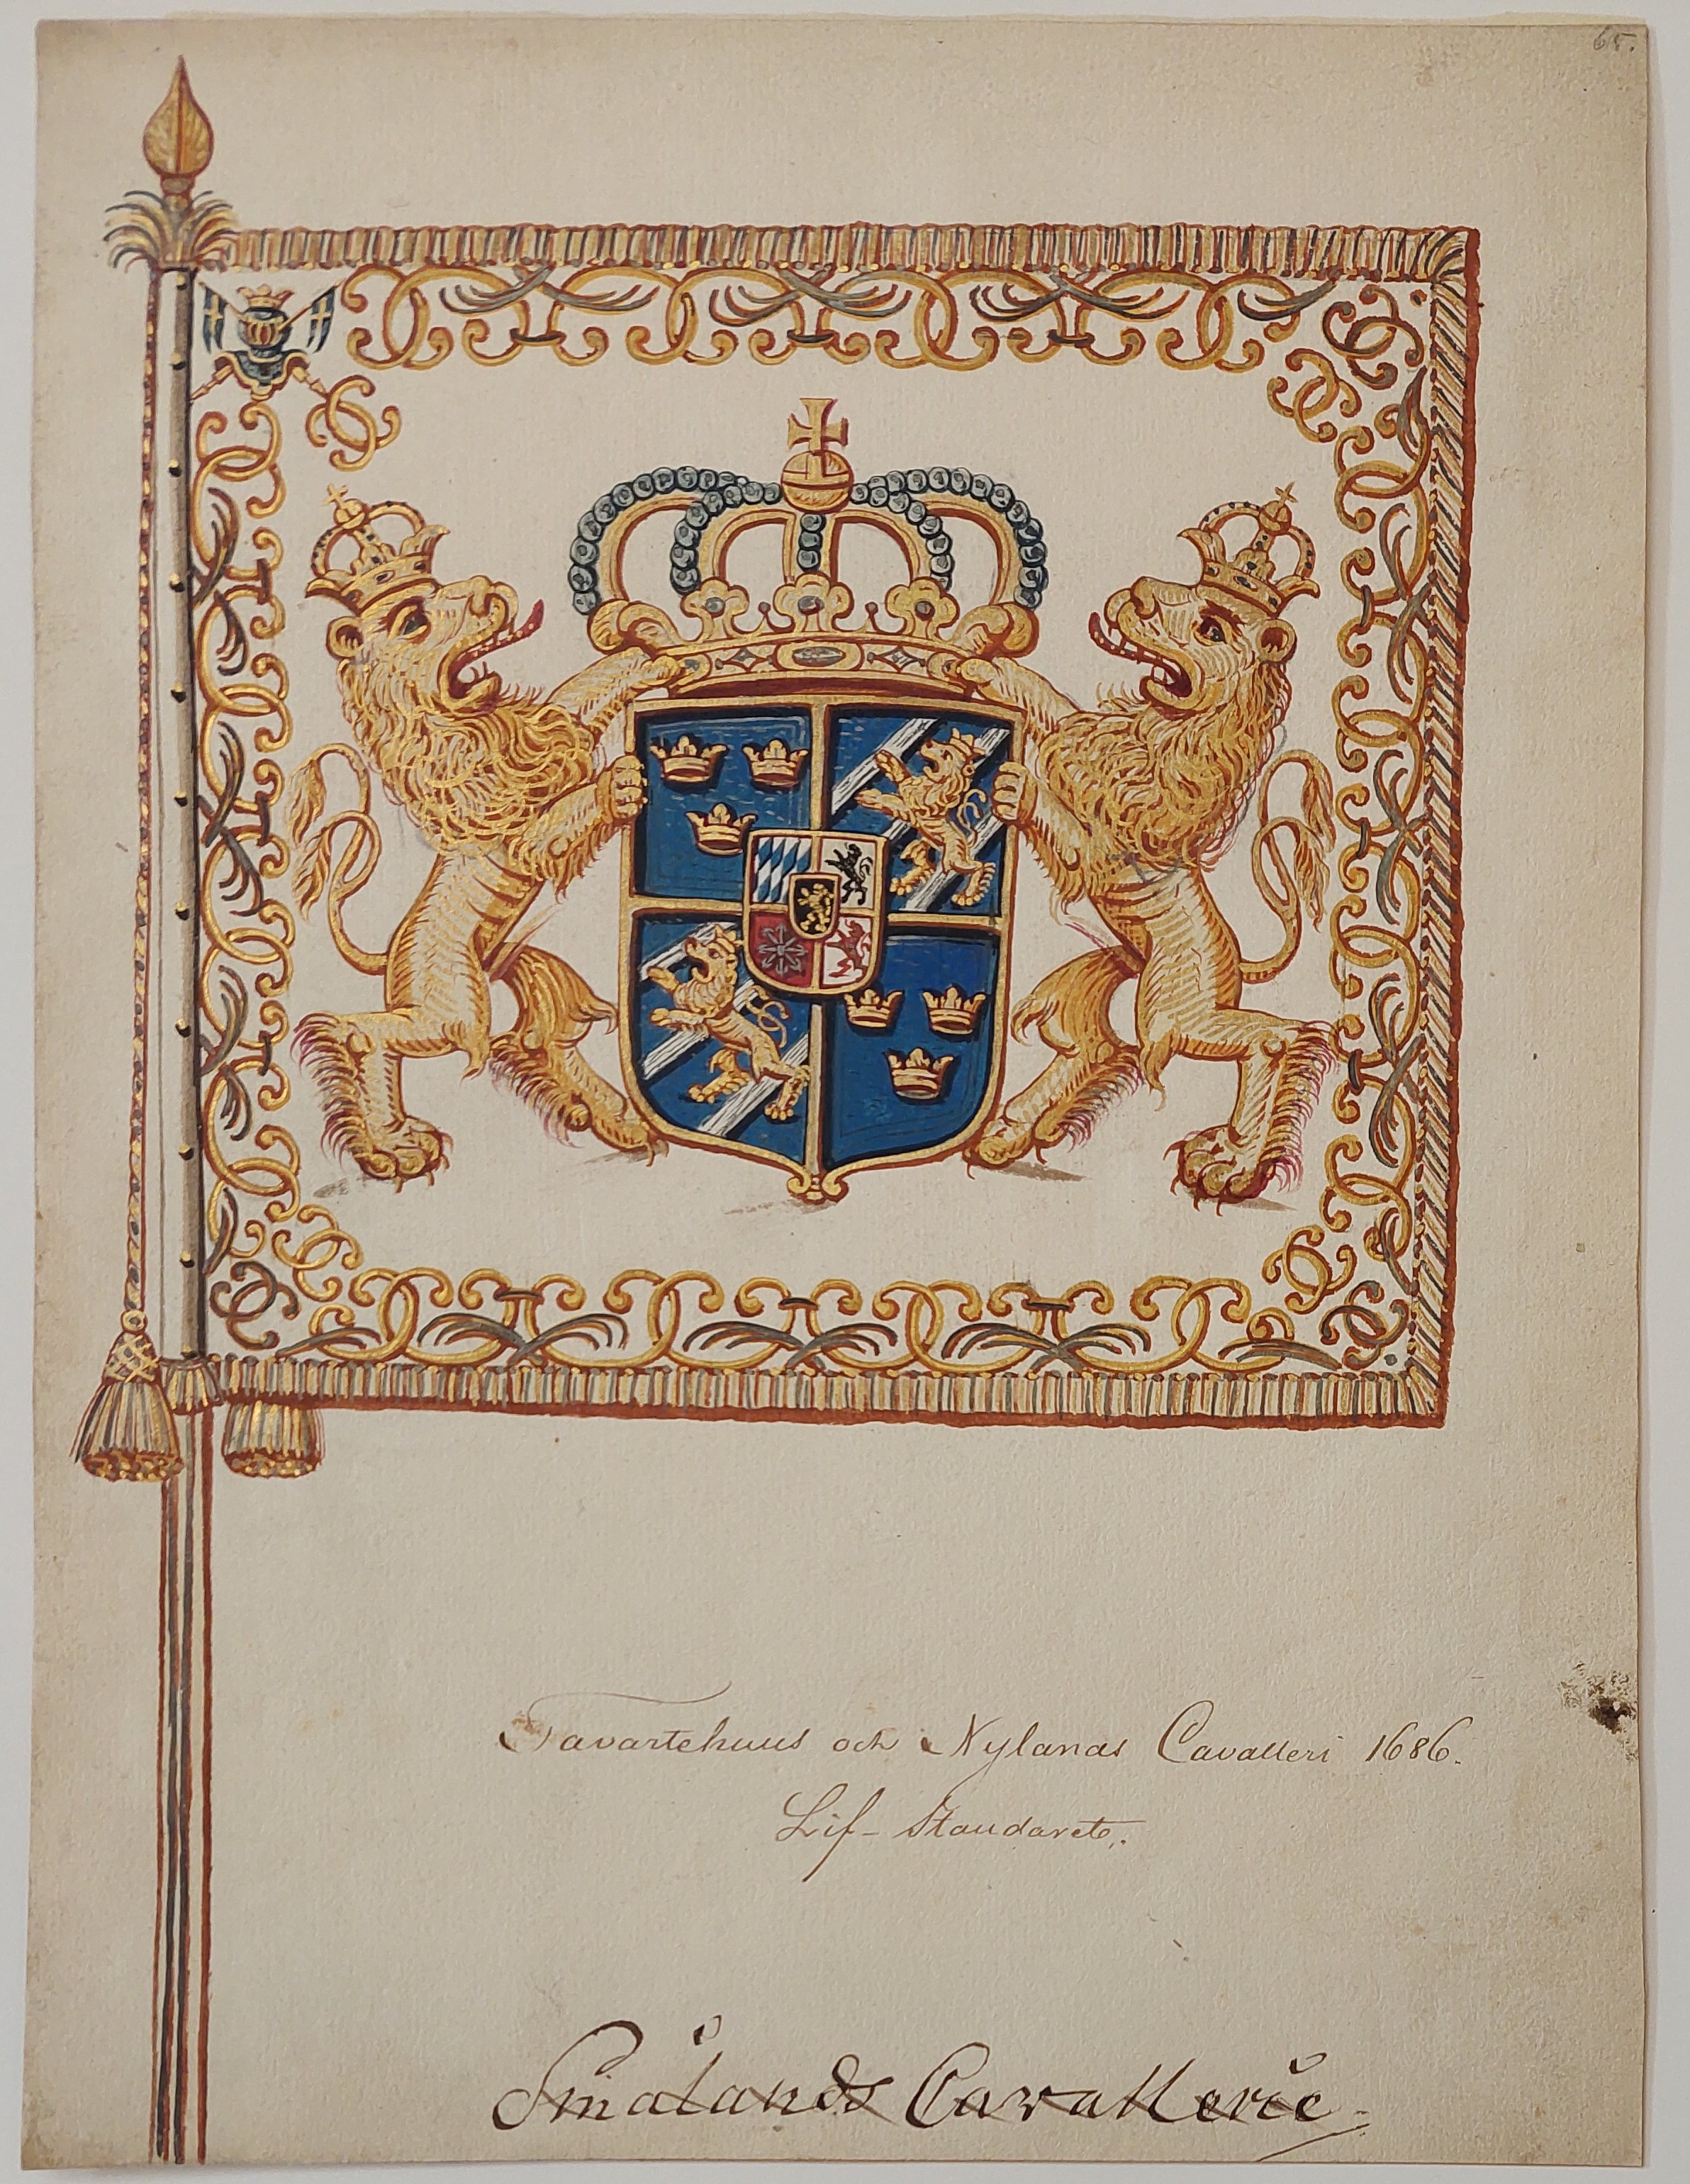 65.
Tavastehuus och Nylands Cavalleri 1686.
Lif-Standaret.
Smålands Cavallerie